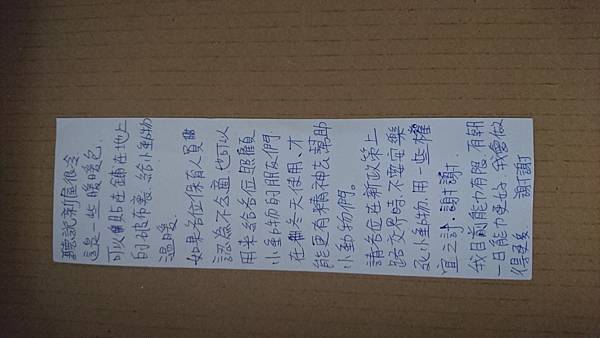 聽說新屋很冷
這是一些暖暖包
可以貼在鋪在地上
的破布裏、給小動物
溫暖
如果各位保育人員
認為不合適 也可以
用來給各位照顧
小動物的朋友們
在冬天使用、才
能更有精神去幫助
小動物們。
請各位在新政策上
路交界時、不要安樂
死小動物、用一些權
宜之計、謝謝.
我目前能力有限 有朝
一日能力更好 我會做
得更多 謝謝